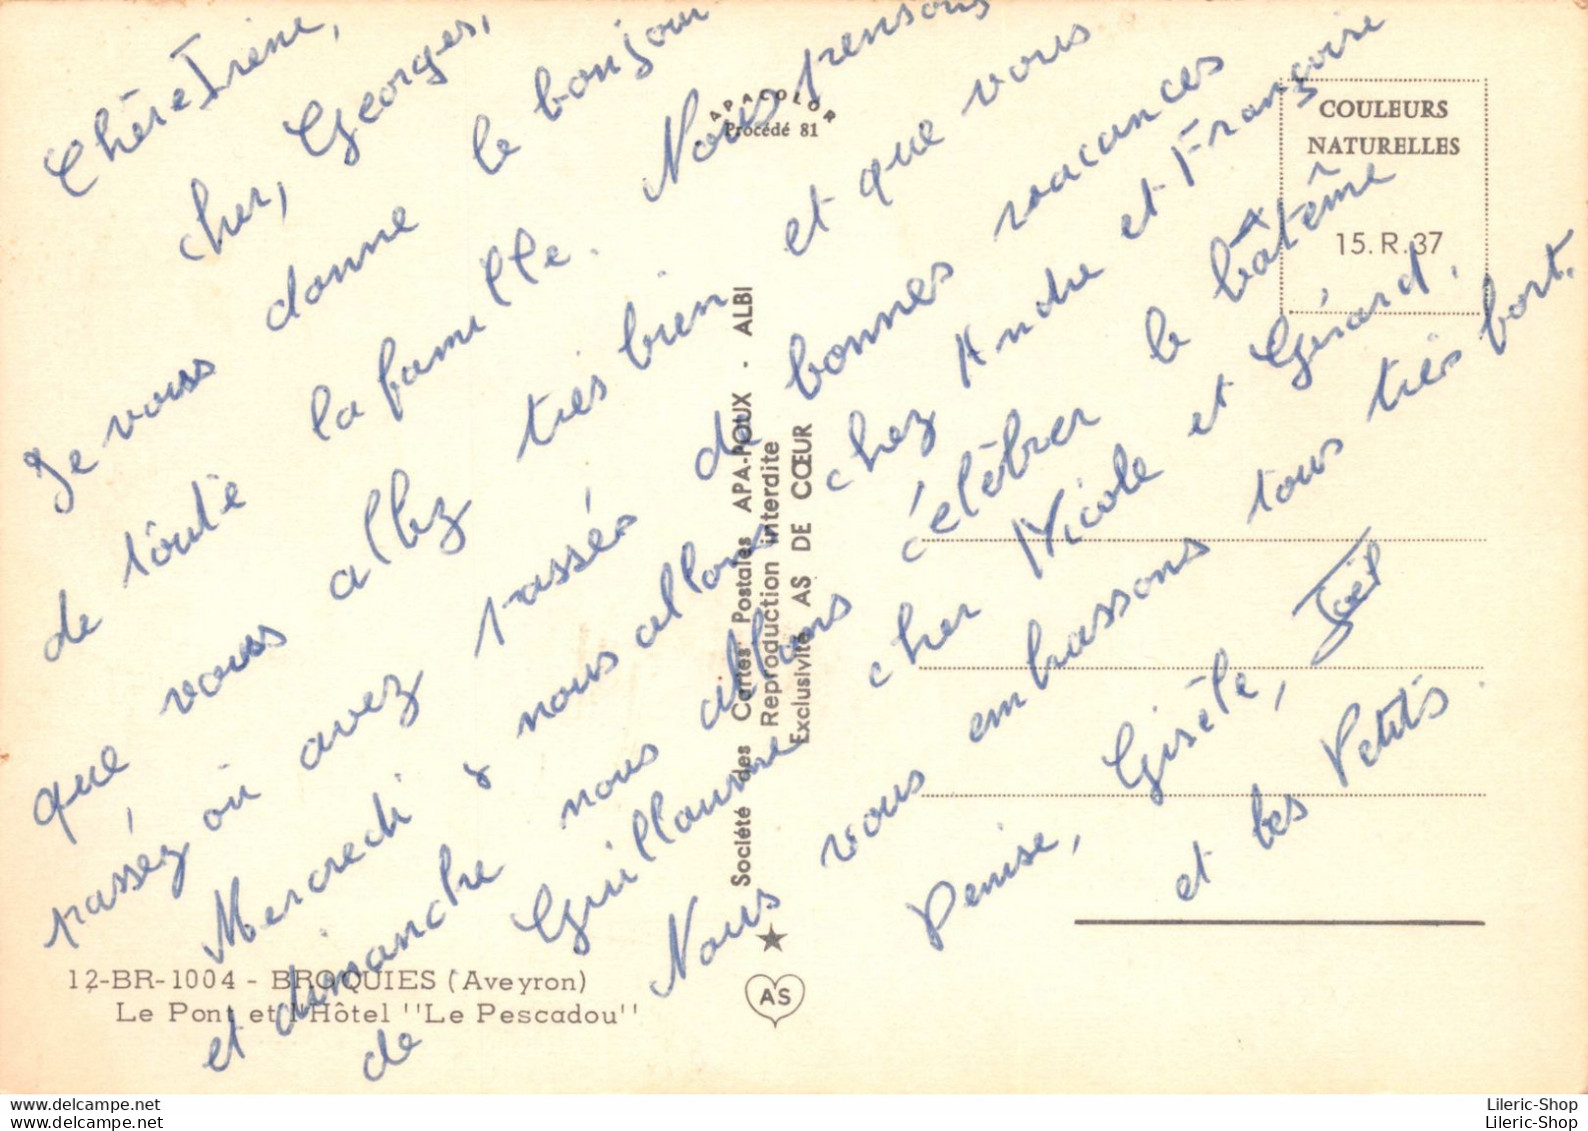 Chère Irène,
cher, Georges,
Je vous donne le bonjour
de toute la famille. Nous pensons
que vous allez très bien et que vous
passéz où avez passés de bonnes vacances
Mercredi nous allons chez André et Françoise
et dimanche nous allons célébrer le bâtême
de Guillaume cher Nicole et Gérard.
Nous vous embrassons tous très fort.
Denise, Gisèle, Joël
et les Petits
APACOLOR
Procédé 81
COULEURS
NATURELLES
15.R.37
Société des Cartes Postales APA-POUX - ALBI
Reproduction interdite
Exclusivité AS DE CŒUR
AS
12-BR-1004 - BROQUIES (Aveyron)
Le Pont et l'Hôtel "Le Pescadou"
Lileric-Shop
Lileric-Shop
Lileric-Shop
Lileric-Shop